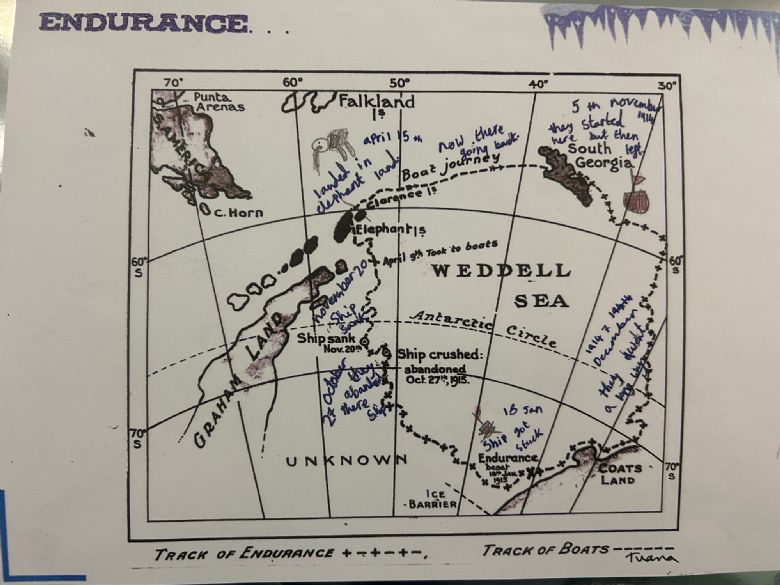 ENDURANCE...
70°
60°
50°
40°
30°
Punta
Arenas
S. AMERICA
C. Horn
Falkland
Is
april 15th
landed in
elephent land
now there
going back
Boat journey
5th november
1914
they started
here but then
left
South
Georgia
Clarence Is
Elephant Is
April 9th Took to boats
60°
S
60°
S
WEDDELL
SEA
november 20
Ship
Sank
Antarctic Circle
Ship sank
Nov. 20th
Ship crushed:
abandoned
Oct. 27th, 1915.
27 October
they
there
Ship
GRAHAM LAND
1914 7
they
a
70°
S
70°
S
UNKNOWN
18 Jan
Ship got
stuck
Endurance
beset
18th Jan.
1915
COATS
LAND
ICE
BARRIER
TRACK OF ENDURANCE +-+-+-+-,
TRACK OF BOATS ------
Tuana